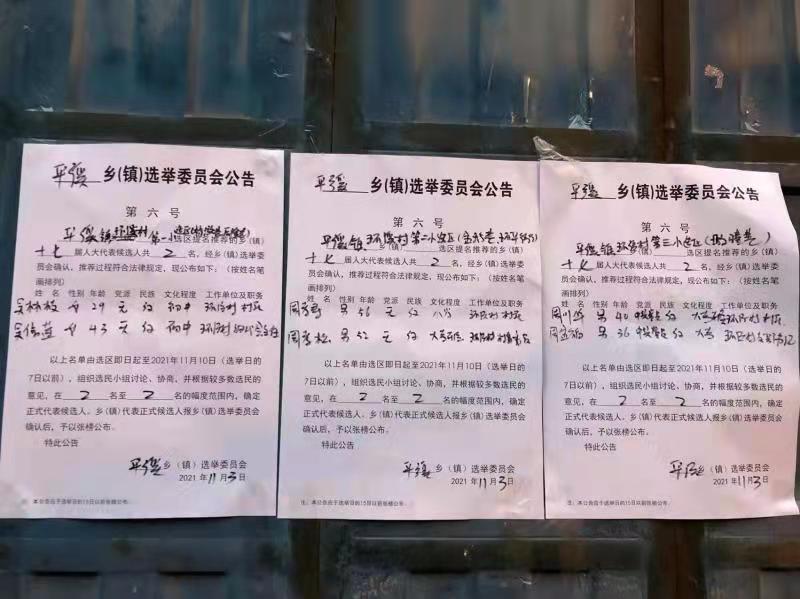 乡(镇)选举委员会公告
第六号
选区提名推荐的乡(镇)
十七届人大代表候选人共2名,经乡(镇)选举委
员会确认,推荐过程符合法律规定,现公布如下:(按姓名笔
画排列)
姓名 性别 年龄 党派 民族 文化程度 工作单位及职务
女 29 元 初中
女 43 元 初中
以上名单由选区即日起至2021年11月10日(选举日的
7日以前),组织选民小组讨论、协商,并根据较多数选民的
意见,在2名至2名的幅度范围内,确定
正式代表候选人。乡(镇)代表正式候选人报乡(镇)选举委员会
确认后,予以张榜公布。
特此公告
乡(镇)选举委员会
2021年11月3日
注:本公告应于选举日的15日以前张榜公布。
乡(镇)选举委员会公告
第六号
村第二小选区
选区提名推荐的乡(镇)
十七届人大代表候选人共2名,经乡(镇)选举委
员会确认,推荐过程符合法律规定,现公布如下:(按姓名笔
画排列)
姓名 性别 年龄 党派 民族 文化程度 工作单位及职务
男 56 元
男 52 元
以上名单由选区即日起至2021年11月10日(选举日的
7日以前),组织选民小组讨论、协商,并根据较多数选民的
意见,在2名至2名的幅度范围内,确定
正式代表候选人。乡(镇)代表正式候选人报乡(镇)选举委员会
确认后,予以张榜公布。
特此公告
乡(镇)选举委员会
2021年11月3日
注:本公告应于选举日的15日以前张榜公布。
乡(镇)选举委员会公告
第六号
村第三小选区
选区提名推荐的乡(镇)
十七届人大代表候选人共2名,经乡(镇)选举委
员会确认,推荐过程符合法律规定,现公布如下:(按姓名笔
画排列)
姓名 性别 年龄 党派 民族 文化程度 工作单位及职务
男 40
男 36
以上名单由选区即日起至2021年11月10日(选举日的
7日以前),组织选民小组讨论、协商,并根据较多数选民的
意见,在2名至2名的幅度范围内,确定
正式代表候选人。乡(镇)代表正式候选人报乡(镇)选举委员会
确认后,予以张榜公布。
特此公告
乡(镇)选举委员会
2021年11月3日
注:本公告应于选举日的15日以前张榜公布。